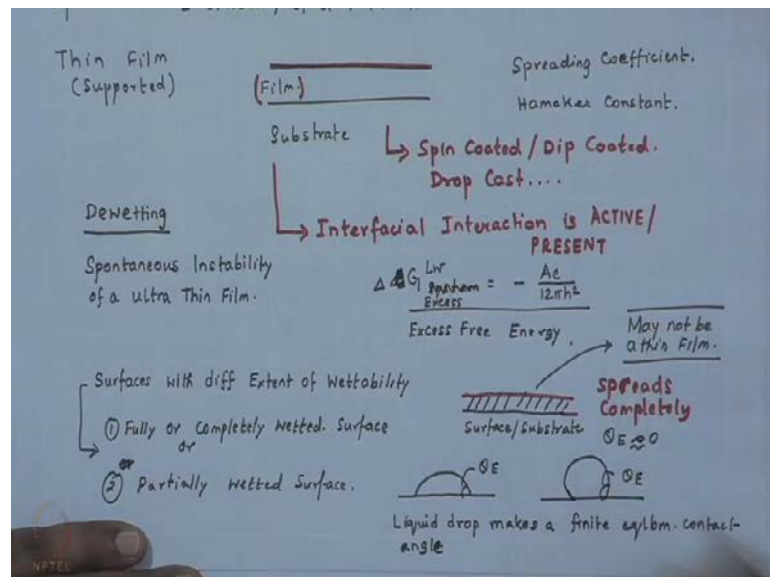 Thin Film
(Supported)
(Film.)
Substrate
Spreading Coefficient.
Hamaker Constant.
Spin Coated / Dip Coated.
Drop Cast....
Interfacial Interaction is ACTIVE/
PRESENT
Dewetting
Spontaneous Instability
of a ultra Thin Film.
ΔG LW Excess = - Ae / 12πh²
Excess Free Energy.
May not be
a thin Film.
Surfaces with diff Extent of Wettability
① Fully or completely wetted. Surface
or
② Partially wetted Surface.
Surface/Substrate
Spreads
Completely
θE ≈ 0
θE
θE
Liquid drop makes a finite eqlbm. contact-
angle
NPTEL